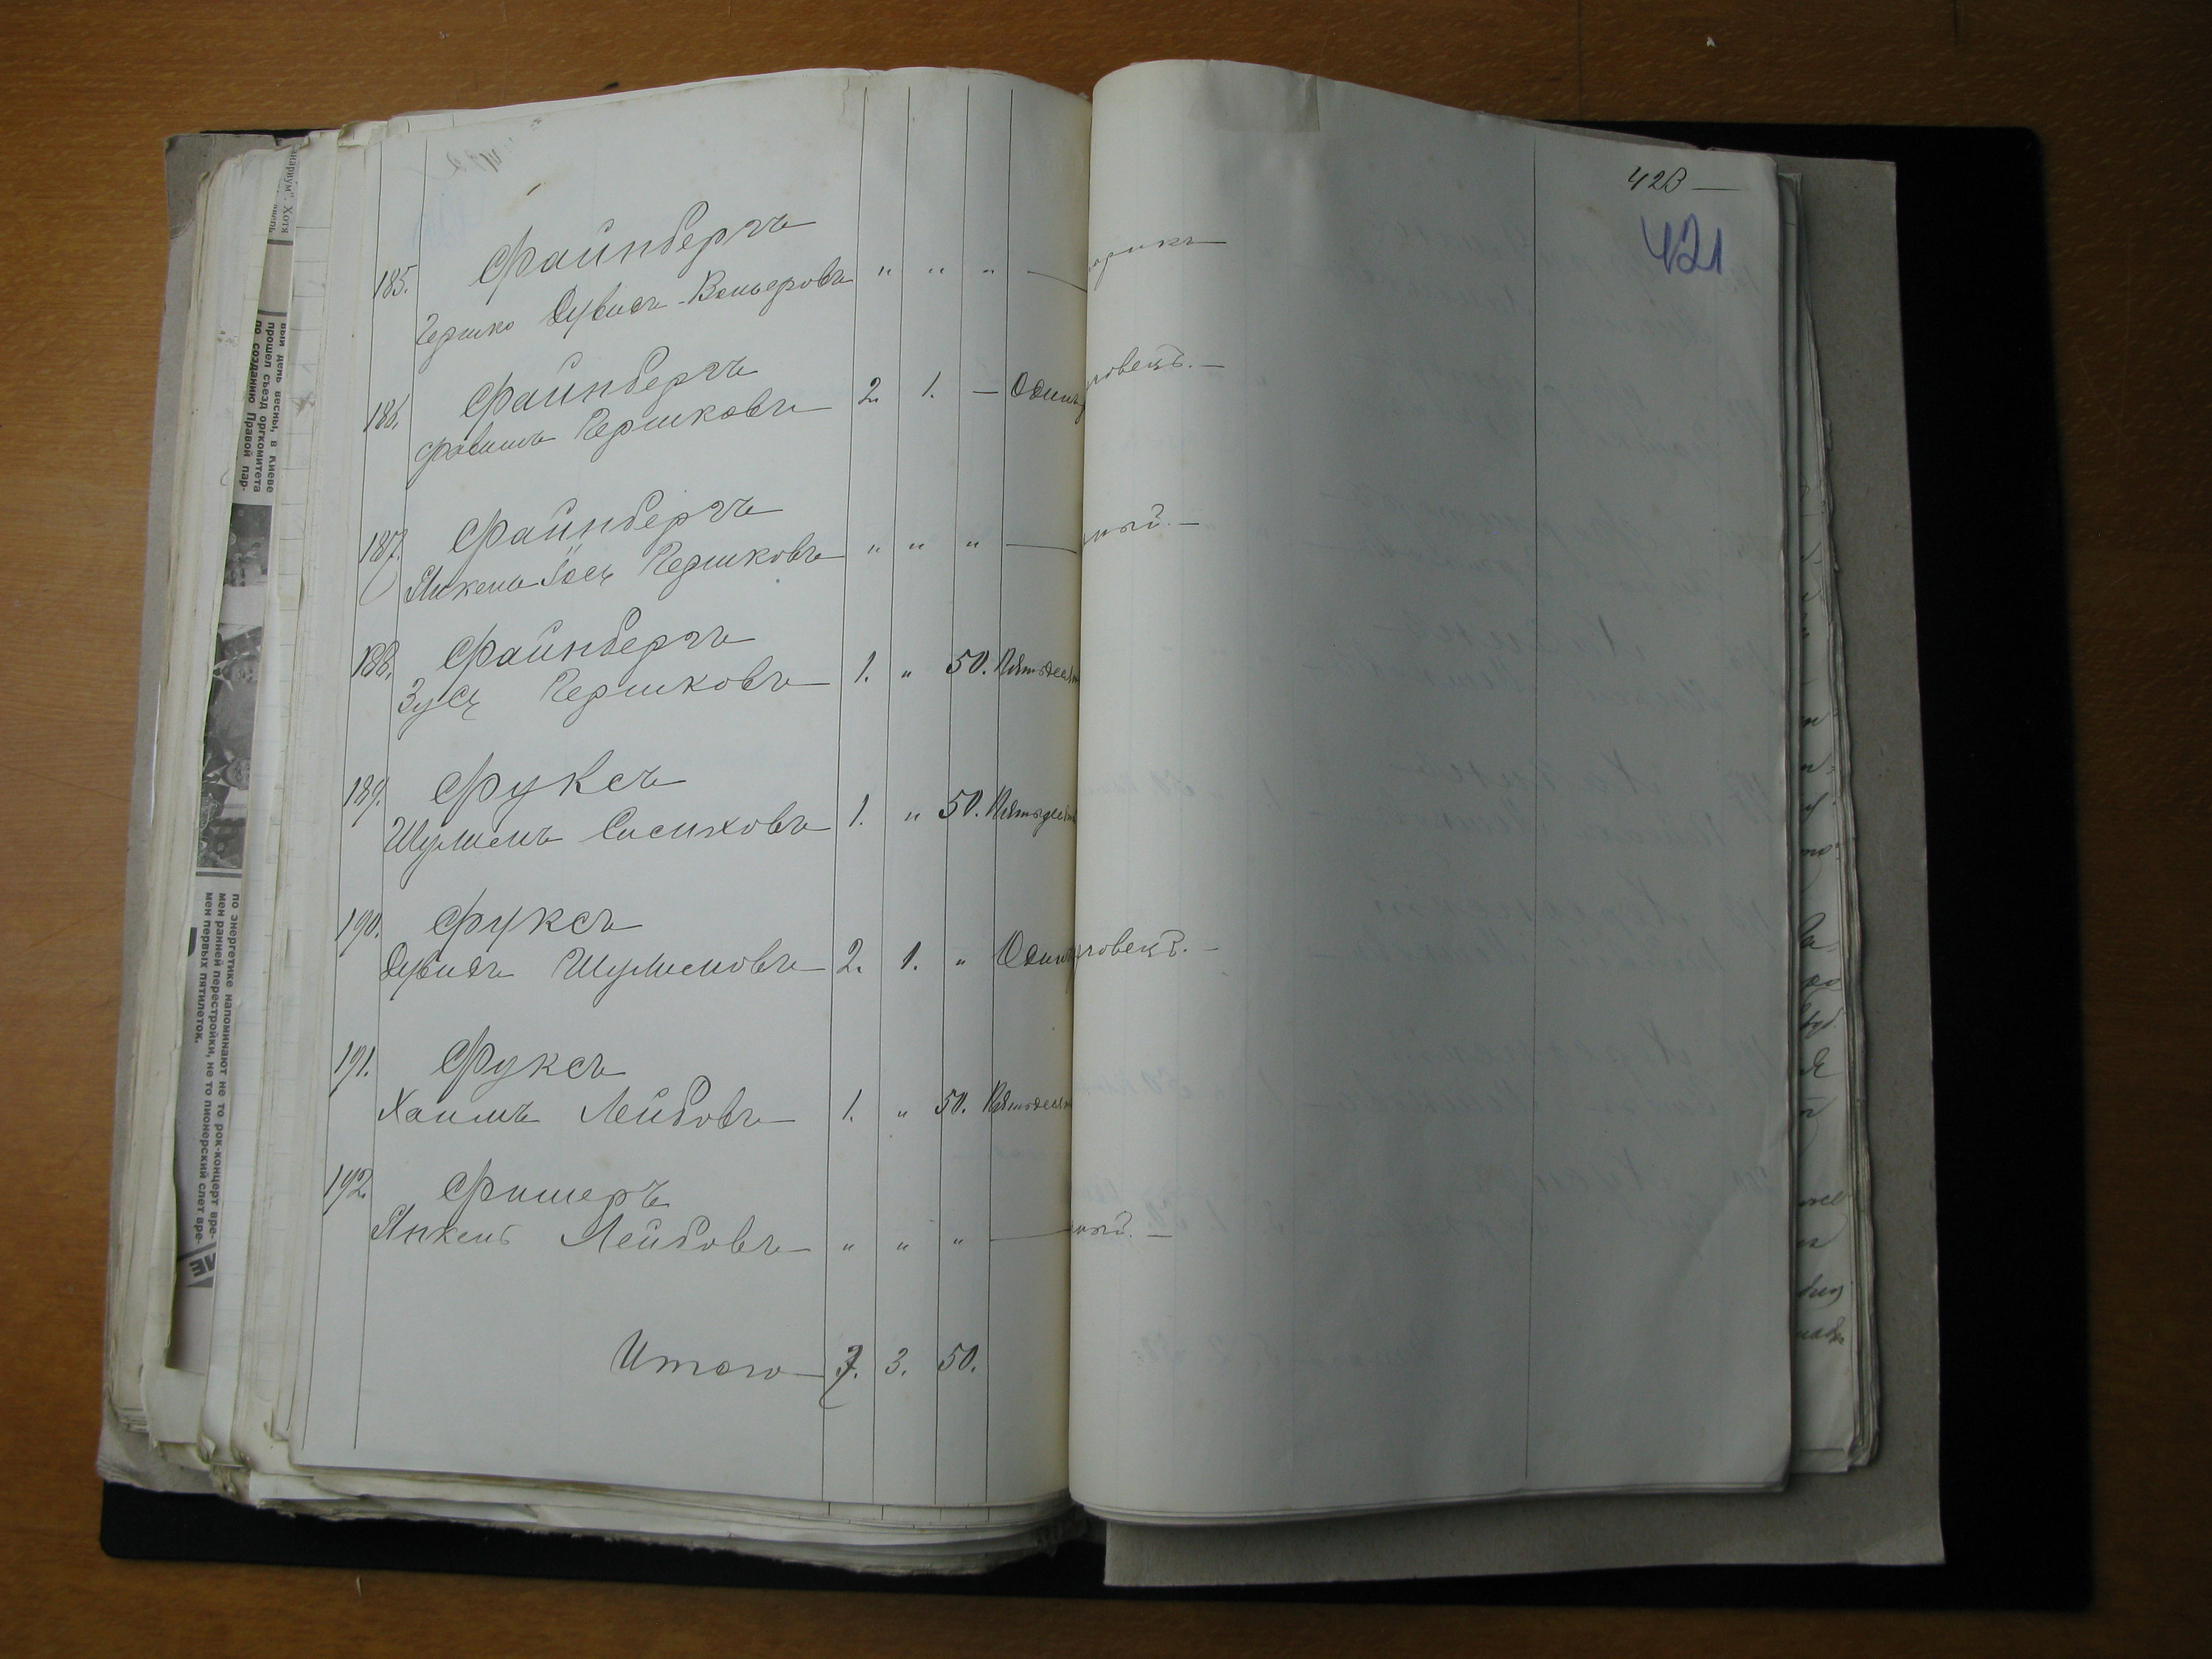 423 —
421
185. Файнбергъ
Гершко Дувидъ-Вольфовъ " " " —
186. Файнбергъ
Фроимъ Гершковъ — 2. 1. — Одинъ
187. Файнбергъ
Янкель Іось Гершковъ — " " " —
188. Файнбергъ
Зусь Гершковъ — 1. " 50. Пятьдесят
189. Фуксъ
Шулимъ Сисиховъ 1. " 50. Пятьдесят
190. Фуксъ
Дувидъ Шулимовъ — 2. 1. " Одинъ
191. Фуксъ
Хаимъ Лейбовъ — 1. " 50. Пятьдесят
192. Фишеръ
Янкель Лейбовъ — " " " —
Итого — 7. 3. 50.
арикъ —
ловекъ. —
ный. —
ловекъ. —
ный. —
вый день весны, в Киеве
прошел съезд оргкомитета
по созданию Правой пар-
по энергетике напоминают не то рок-концерт вре-
мен ранней перестройки, не то пионерский слет вре-
мен первых пятилеток.